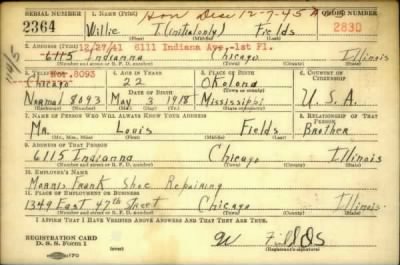 SERIAL NUMBER 1. NAME (Print) Hon Disc 12-7-45 ORDER NUMBER
2364 Willie I. (initial only) Fields 2830
(First) (Middle) (Last)
2. ADDRESS (Print) 12/27/41 6111 Indiana Ave.-1st Fl.
6115 Indianna Chicago Illinois
(Number and street or R. F. D. number) (Town) (County) (State)
3. TELEPHONE Nor.8093 4. AGE IN YEARS 5. PLACE OF BIRTH 6. COUNTRY OF CITIZENSHIP
Chicago 22 Okolona
DATE OF BIRTH (Town or county)
Normal 8093 May 3 1918 Mississippi U.S.A.
(Exchange) (Number) (Mo.) (Day) (Yr.) (State or country)
7. NAME OF PERSON WHO WILL ALWAYS KNOW YOUR ADDRESS 8. RELATIONSHIP OF THAT PERSON
Mr. Louis Fields Brother
(Mr., Mrs., Miss) (First) (Middle) (Last)
9. ADDRESS OF THAT PERSON
6115 Indianna Chicago Illinois
(Number and street or R. F. D. number) (Town) (County) (State)
10. EMPLOYER'S NAME
Morris Frank Shoe Repairing
11. PLACE OF EMPLOYMENT OR BUSINESS
1349 East 47th Street Chicago Illinois
(Number and street or R. F. D. number) (Town) (County) (State)
I AFFIRM THAT I HAVE VERIFIED ABOVE ANSWERS AND THAT THEY ARE TRUE.
REGISTRATION CARD
D. S. S. Form 1 W Fields
(over) (Registrant's signature)